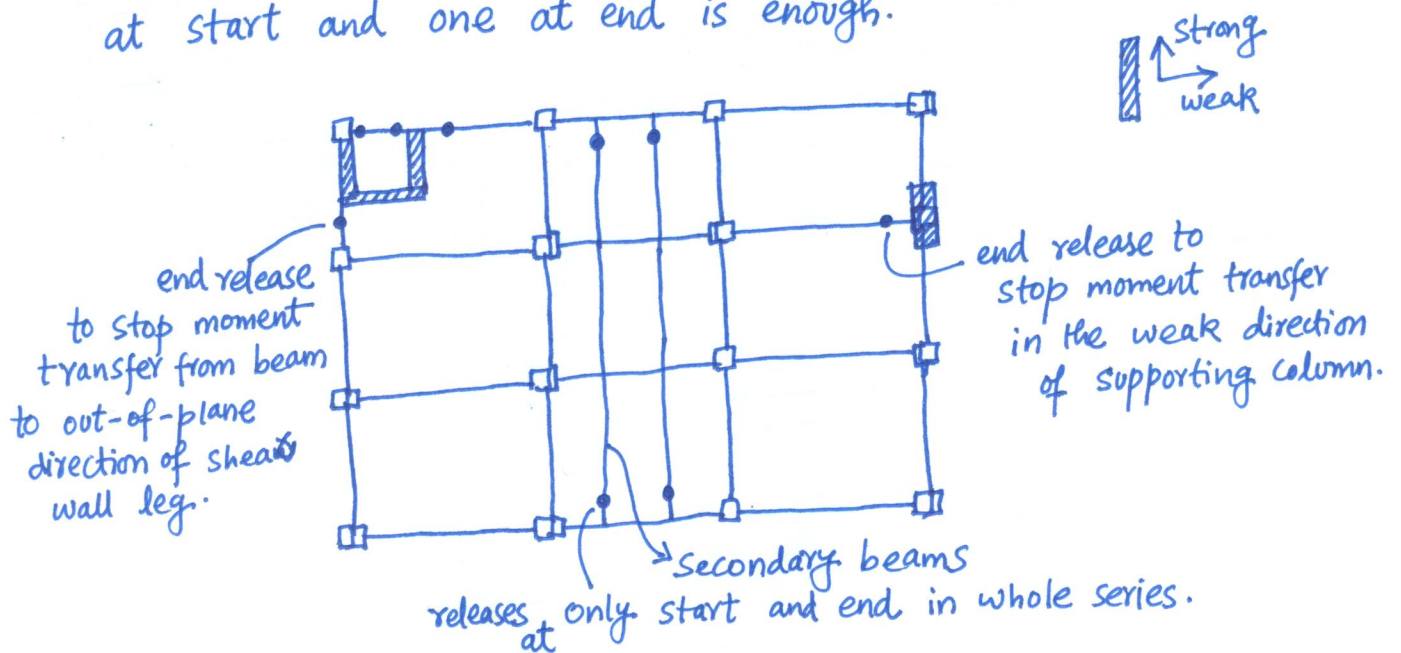 at start and one at end is enough.
strong
weak
end release
to stop moment
transfer from beam
to out-of-plane
direction of shear
wall leg.
end release to
stop moment transfer
in the weak direction
of supporting column.
secondary beams
releases at only start and end in whole series.